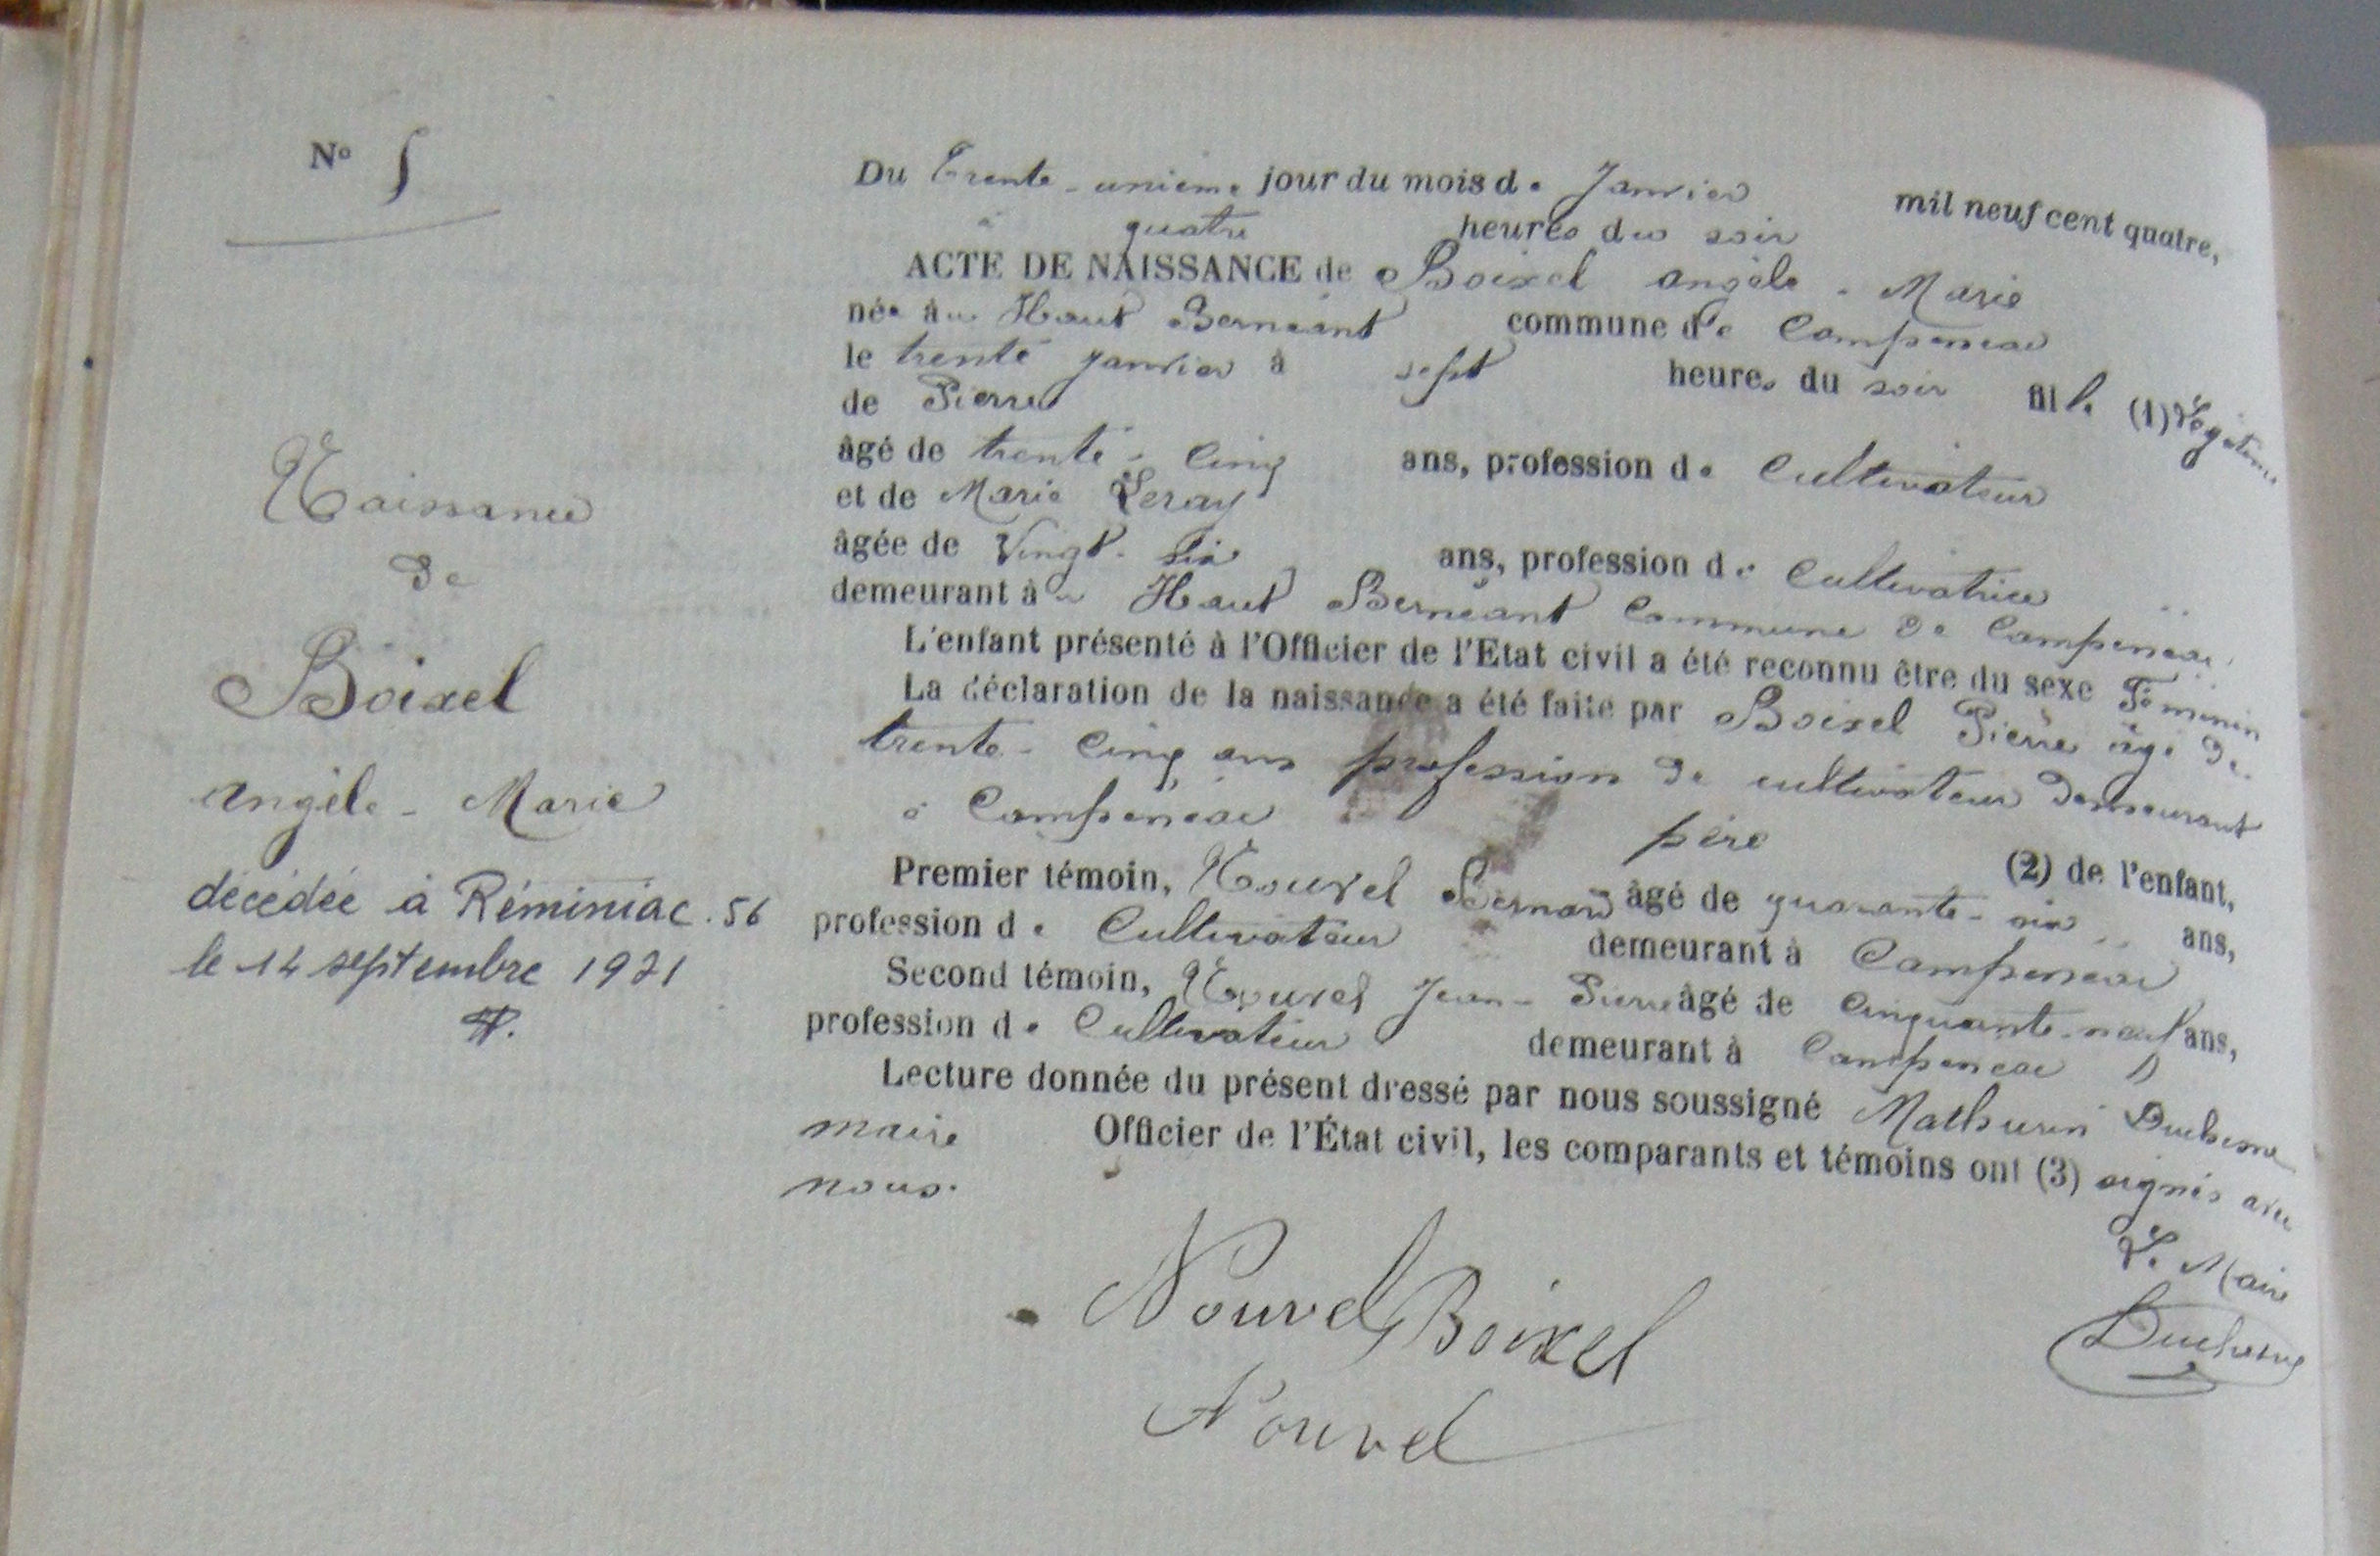 N° 5
Naissance
de
Boixel
Angèle - Marie
décédée à Réminiac. 56
le 14 septembre 1921
Du Trente-unième jour du mois de Janvier mil neuf cent quatre,
à quatre heures du soir
ACTE DE NAISSANCE de Boixel Angèle - Marie
née au Haut Bernéant commune de Campénéac
le trente janvier à sept heures du soir fille (1) Légitime
de Pierre
âgé de trente-cinq ans, profession de Cultivateur
et de Marie Leray
âgée de Vingt-six ans, profession de Cultivatrice
demeurant au Haut Bernéant Commune de Campénéac.
L'enfant présenté à l'Officier de l'Etat civil a été reconnu être du sexe Féminin
La déclaration de la naissance a été faite par Boixel Pierre âgé de
trente-cinq ans profession de cultivateur demeurant
à Campénéac père (2) de l'enfant,
Premier témoin, Nouvel Bernard âgé de quarante-six ans,
profession de Cultivateur demeurant à Campénéac
Second témoin, Nouvel Jean-Pierre âgé de Cinquante-neuf ans,
profession de Cultivateur demeurant à Campénéac
Lecture donnée du présent dressé par nous soussigné Mathurin Duchesne
maire Officier de l'État civil, les comparants et témoins ont (3) signés avec
nous.
Le Maire
Nouvel Boixel
Duchesne
Nouvel